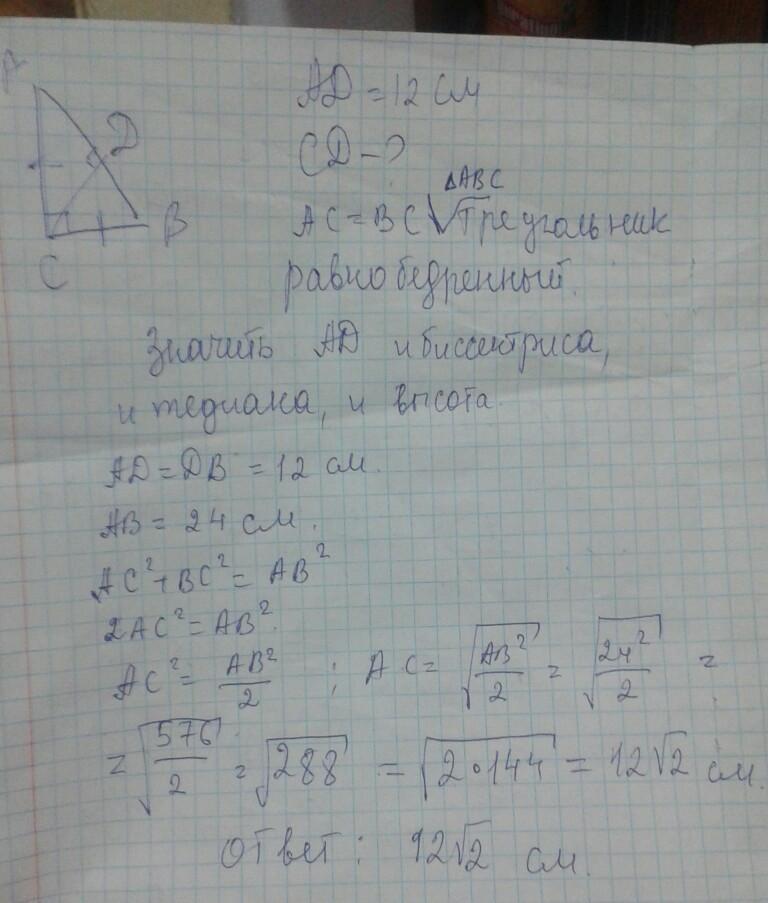 A
D
B
C
AD = 12 см
CD - ?
ΔABC
AC = BC √ Треугольник
равнобедренный.
Значить AD и биссектриса,
и медиана, и высота.
AD = DB = 12 см.
AB = 24 см.
AC² + BC² = AB²
2AC² = AB².
AC² = AB²/2 ; AC = √(AB²/2) = √(24²/2) =
= √(576/2) = √288 = √(2·144) = 12√2 см.
Ответ: 12√2 см.